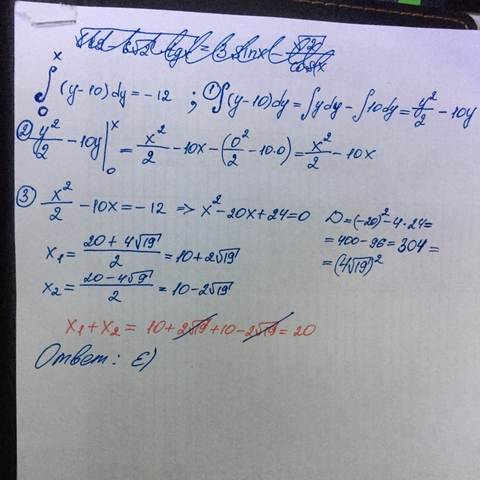 ∫₀ˣ (y-10)dy = -12 ; ① ∫(y-10)dy = ∫ydy - ∫10dy = y²/2 - 10y
② y²/2 - 10y |₀ˣ = x²/2 - 10x - (0²/2 - 10·0) = x²/2 - 10x
③ x²/2 - 10x = -12 => x² - 20x + 24 = 0
D = (-20)² - 4·24 =
= 400 - 96 = 304 =
= (4√19)²
x₁ = (20 + 4√19)/2 = 10 + 2√19
x₂ = (20 - 4√19)/2 = 10 - 2√19
x₁ + x₂ = 10 + 2√19 + 10 - 2√19 = 20
Ответ: E)